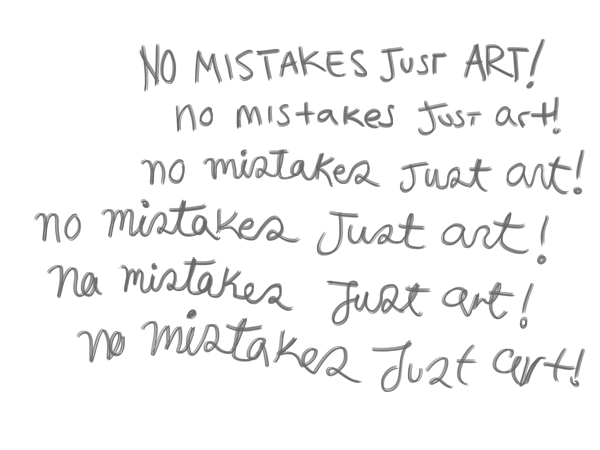 NO MISTAKES JUST ART!
no mistakes Just art!
no mistakes Just art!
no mistakes Just art!
na mistakes Just art!
no mistakes Just art!